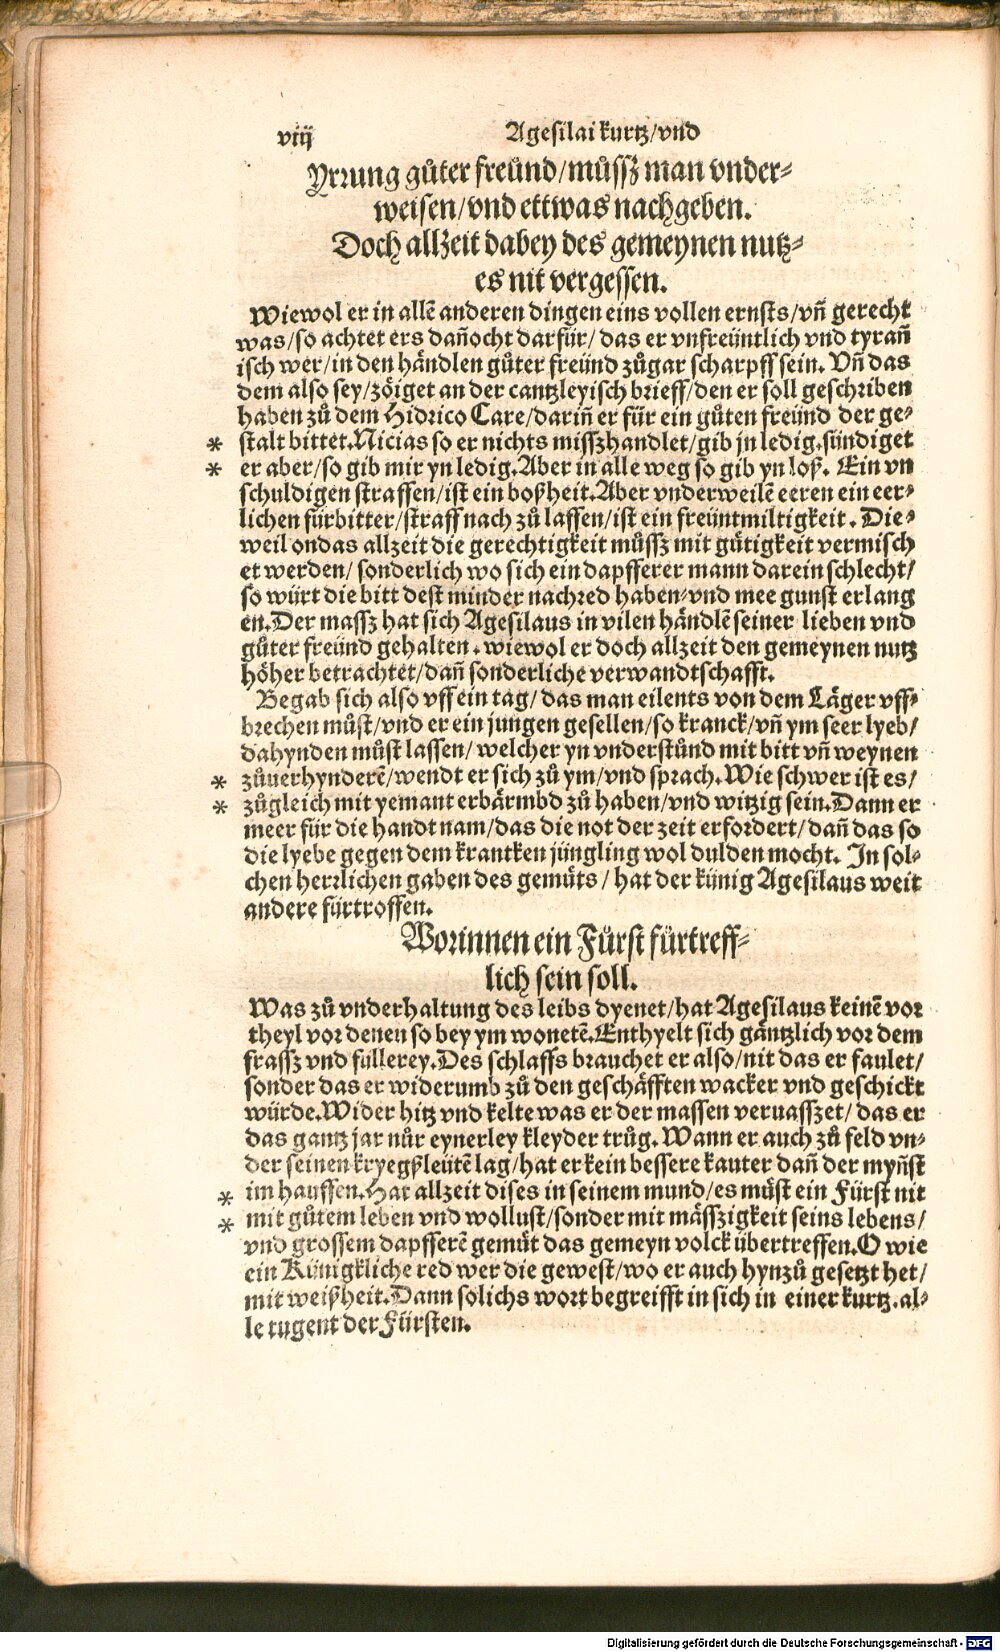 viij Agesilai kurtz/vnd
Yrrung gůter freünd/můssz man vnder⸗
weisen/vnd ettwas nachgeben.
Doch allzeit dabey des gemeynen nutz⸗
es nit vergessen.
Wiewol er in allē anderen dingen eins vollen ernsts/vñ gerecht
was/so achtet ers dañocht darfür/ das er vnfreüntlich vnd tyrañ
isch wer/in den händlen gůter freünd zůgar scharpff sein. Vñ das
dem also sey/zöiget an der cantzleyisch brieff/den er soll geschriben
haben zů dem Hidrico Care/dariñ er für ein gůten freünd der ge⸗
* stalt bittet.Nicias so er nichts misszhandlet/gib jn ledig.sündiget
* er aber/so gib mir yn ledig.Aber in alle weg so gib yn loß. Ein vn
schuldigen straffen/ist ein boßheit.Aber vnderweilē eeren ein eer⸗
lichen fürbitter/straff nach zů lassen/ist ein freüntmiltigkeit. Die⸗
weil ondas allzeit die gerechtigkeit můssz mit gütigkeit vermisch
et werden/ sonderlich wo sich ein dapfferer mann darein schlecht/
so würt die bitt dest minder nachred haben/vnd mee gunst erlang
en.Der massz hat sich Agesilaus in vilen händlē seiner lieben vnd
gůter freünd gehalten. wiewol er doch allzeit den gemeynen nutz
höher betrachtet/dañ sonderliche verwandtschafft.
Begab sich also vff ein tag/ das man eilents von dem Läger vff⸗
brechen můst/vnd er ein jungen gesellen/so kranck/vñ ym seer lyeb/
dahynden můst lassen/ welcher yn vnderstůnd mit bitt vñ weynen
* zůuerhynderē/wendt er sich zů ym/vnd sprach.Wie schwer ist es/
* zůgleich mit yemant erbärmbd zů haben/vnd witzig sein.Dann er
meer für die handt nam/das die not der zeit erfordert/dañ das so
die lyebe gegen dem krantken jüngling wol dulden mocht. In sol⸗
chen herrlichen gaben des gemüts/ hat der künig Agesilaus weit
andere fürtroffen.
Worinnen ein Fürst fürtreff⸗
lich sein soll.
Was zů vnderhaltung des leibs dyenet/hat Agesilaus keinē vor
theyl vor denen so bey ym wonetē.Enthyelt sich gäntzlich vor dem
frassz vnd füllerey.Des schlaffs brauchet er also/nit das er faulet/
sonder das er widerumb zů den geschäfften wacker vnd geschickt
würde.Wider hitz vnd kelte was er der massen veruasszet/ das er
das gantz jar nůr eynerley kleyder trůg. Wann er auch zů feld vn⸗
der seinen kryegßleütē lag/hat er kein bessere kauter dañ der myñst
* im hauffen.Hat allzeit dises in seinem mund/es můst ein Fürst nit
* mit gůtem leben vnd wollust/sonder mit mässzigkeit seins lebens/
vnd grossem dapfferē gemüt das gemeyn volck übertreffen.O wie
ein Künigkliche red wer die gewest/wo er auch hynzů gesetzt het/
mit weißheit.Dann solichs wort begreifft in sich in einer kurtz.al⸗
le tugent der Fürsten.
Digitalisierung gefördert durch die Deutsche Forschungsgemeinschaft - DFG